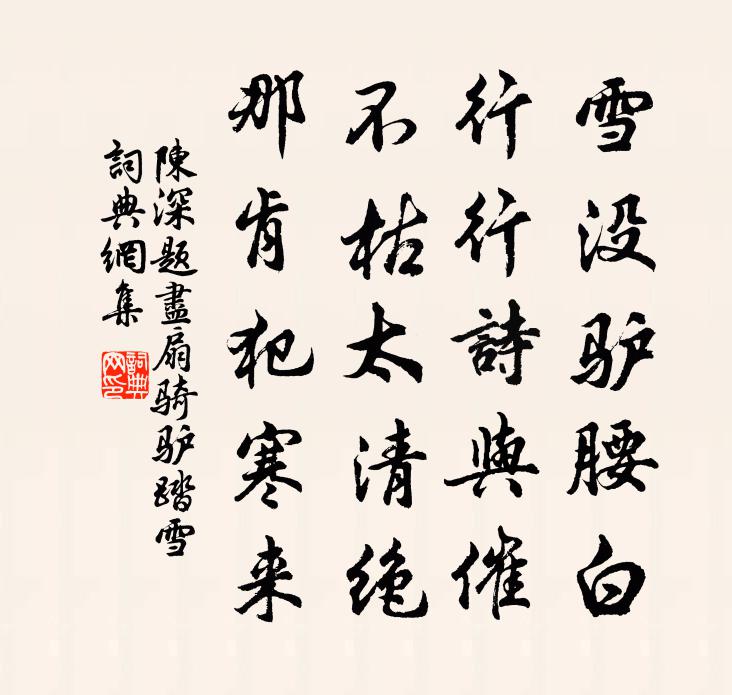 雪没驴腰白
行行詩與催
不枯太清绝
那肯犯寒来
陳深题盡扇骑驴踏雪
詞典網集
詞典
网印